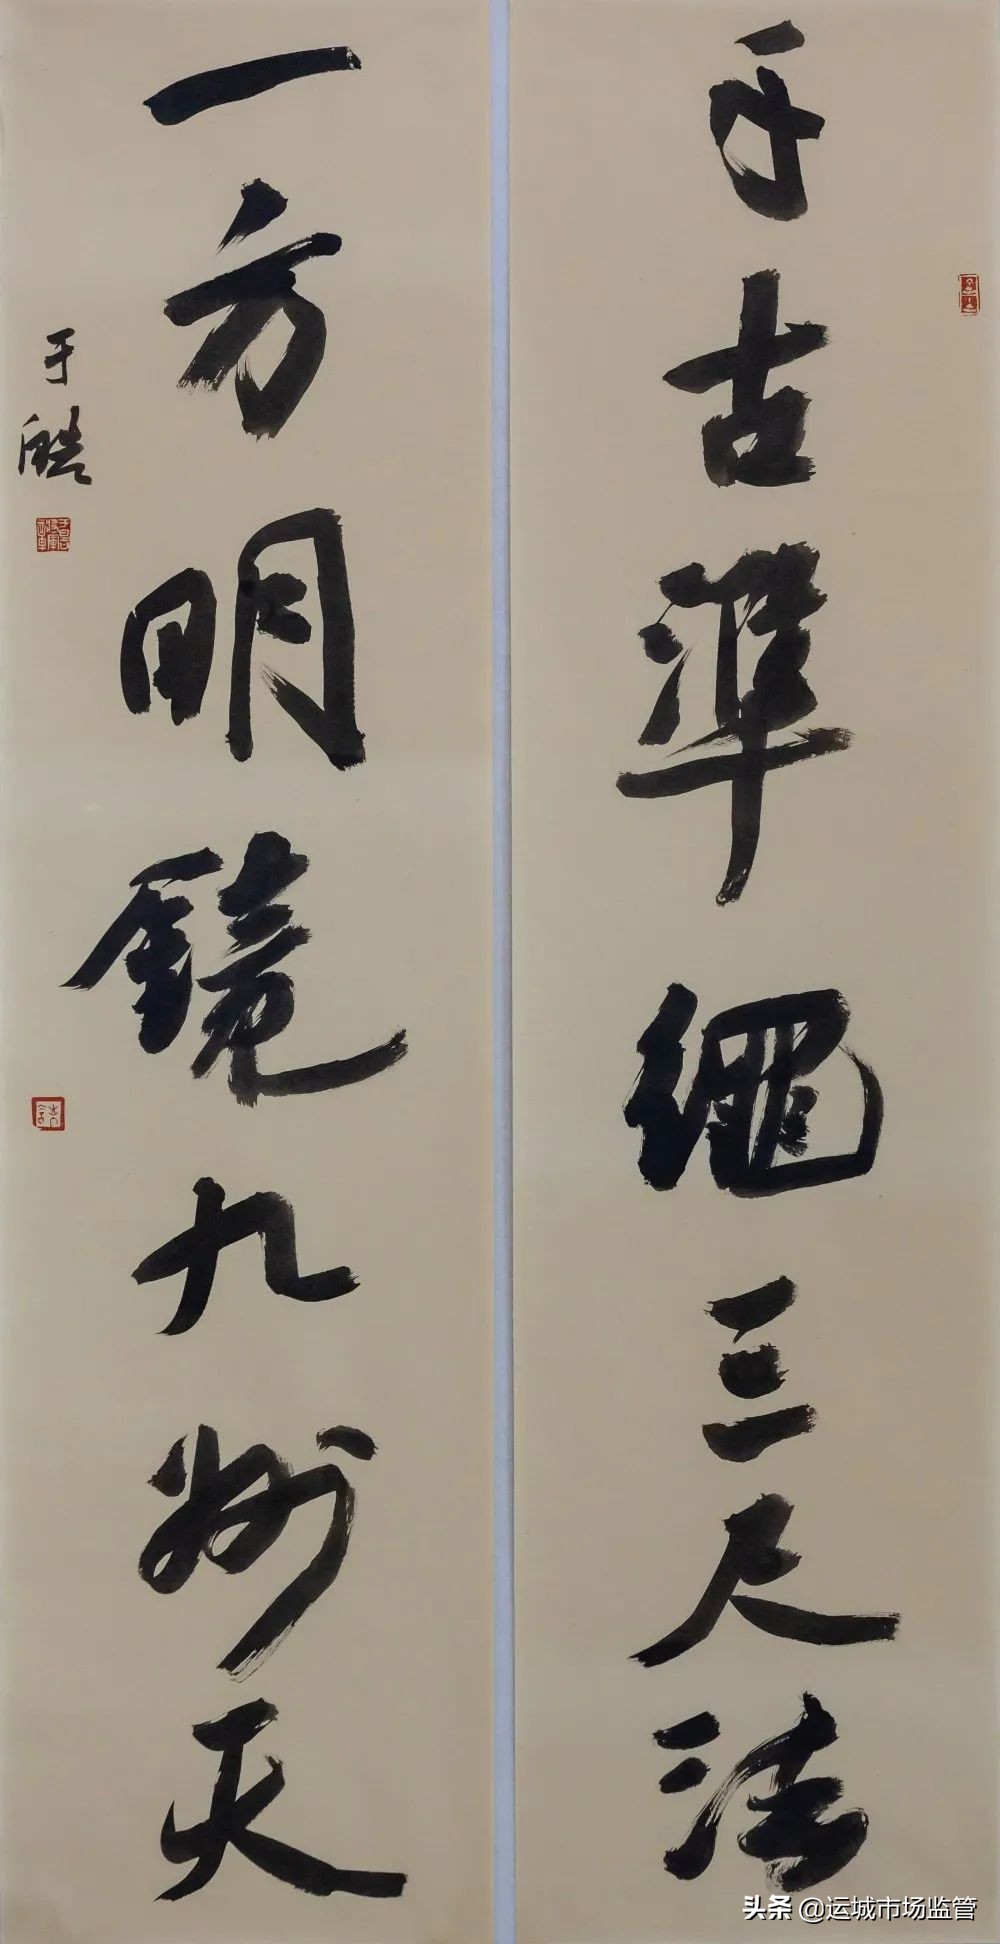 千古準繩三尺法
一方明鏡九州天
于皓
头条 @运城市场监管